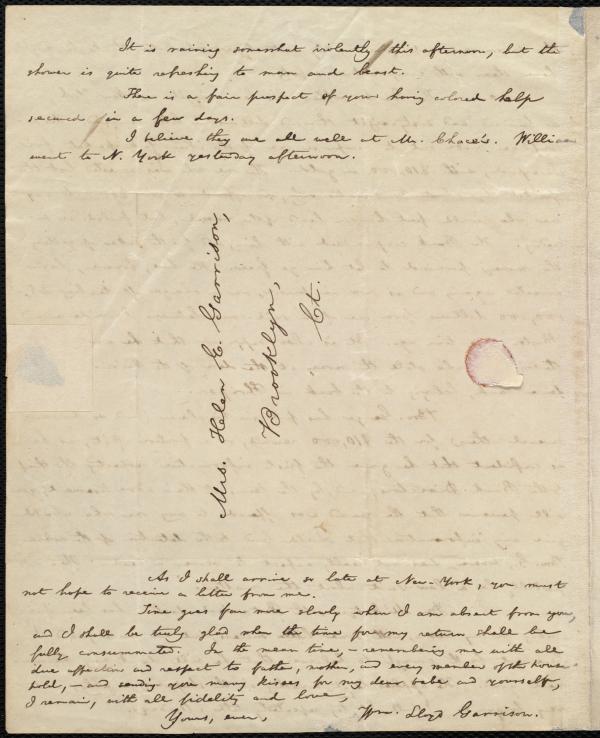 It is raining somewhat violently this afternoon, but the
shower is quite refreshing to man and beast.
There is a fair prospect of your having colored help
secured in a few days.
I believe they are all well at Mr. Chace's. William
went to N. York yesterday afternoon.
Mrs. Helen E. Garrison,
Brooklyn,
Ct.
As I shall arrive so late at New-York, you must
not hope to receive a letter from me.
Time goes far more slowly when I am absent from you,
and I shall be truly glad when the time for my return shall be
fully consummated. In the mean time,—remembering me with all
due affection and respect to father, mother, and every member of the house-
hold,—and sending you many kisses for my dear babe and yourself,
I remain, with all fidelity and love,
Yours, ever, Wm. Lloyd Garrison.